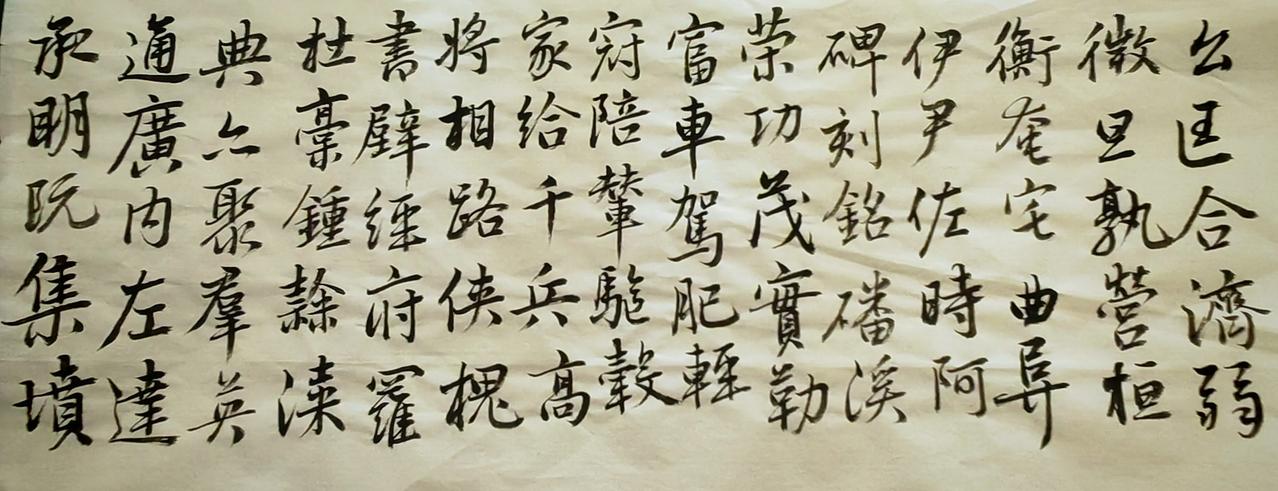 承明既集墳
通廣内左達
典亦聚羣英
杜稾鍾隸漆
書壁經府羅
將相路俠槐
家給千兵高
冠陪輦驅轂
富車駕肥輕
策功茂實勒
碑刻銘磻溪
伊尹佐時阿
衡奄宅曲阜
微旦孰營桓
公匡合濟弱